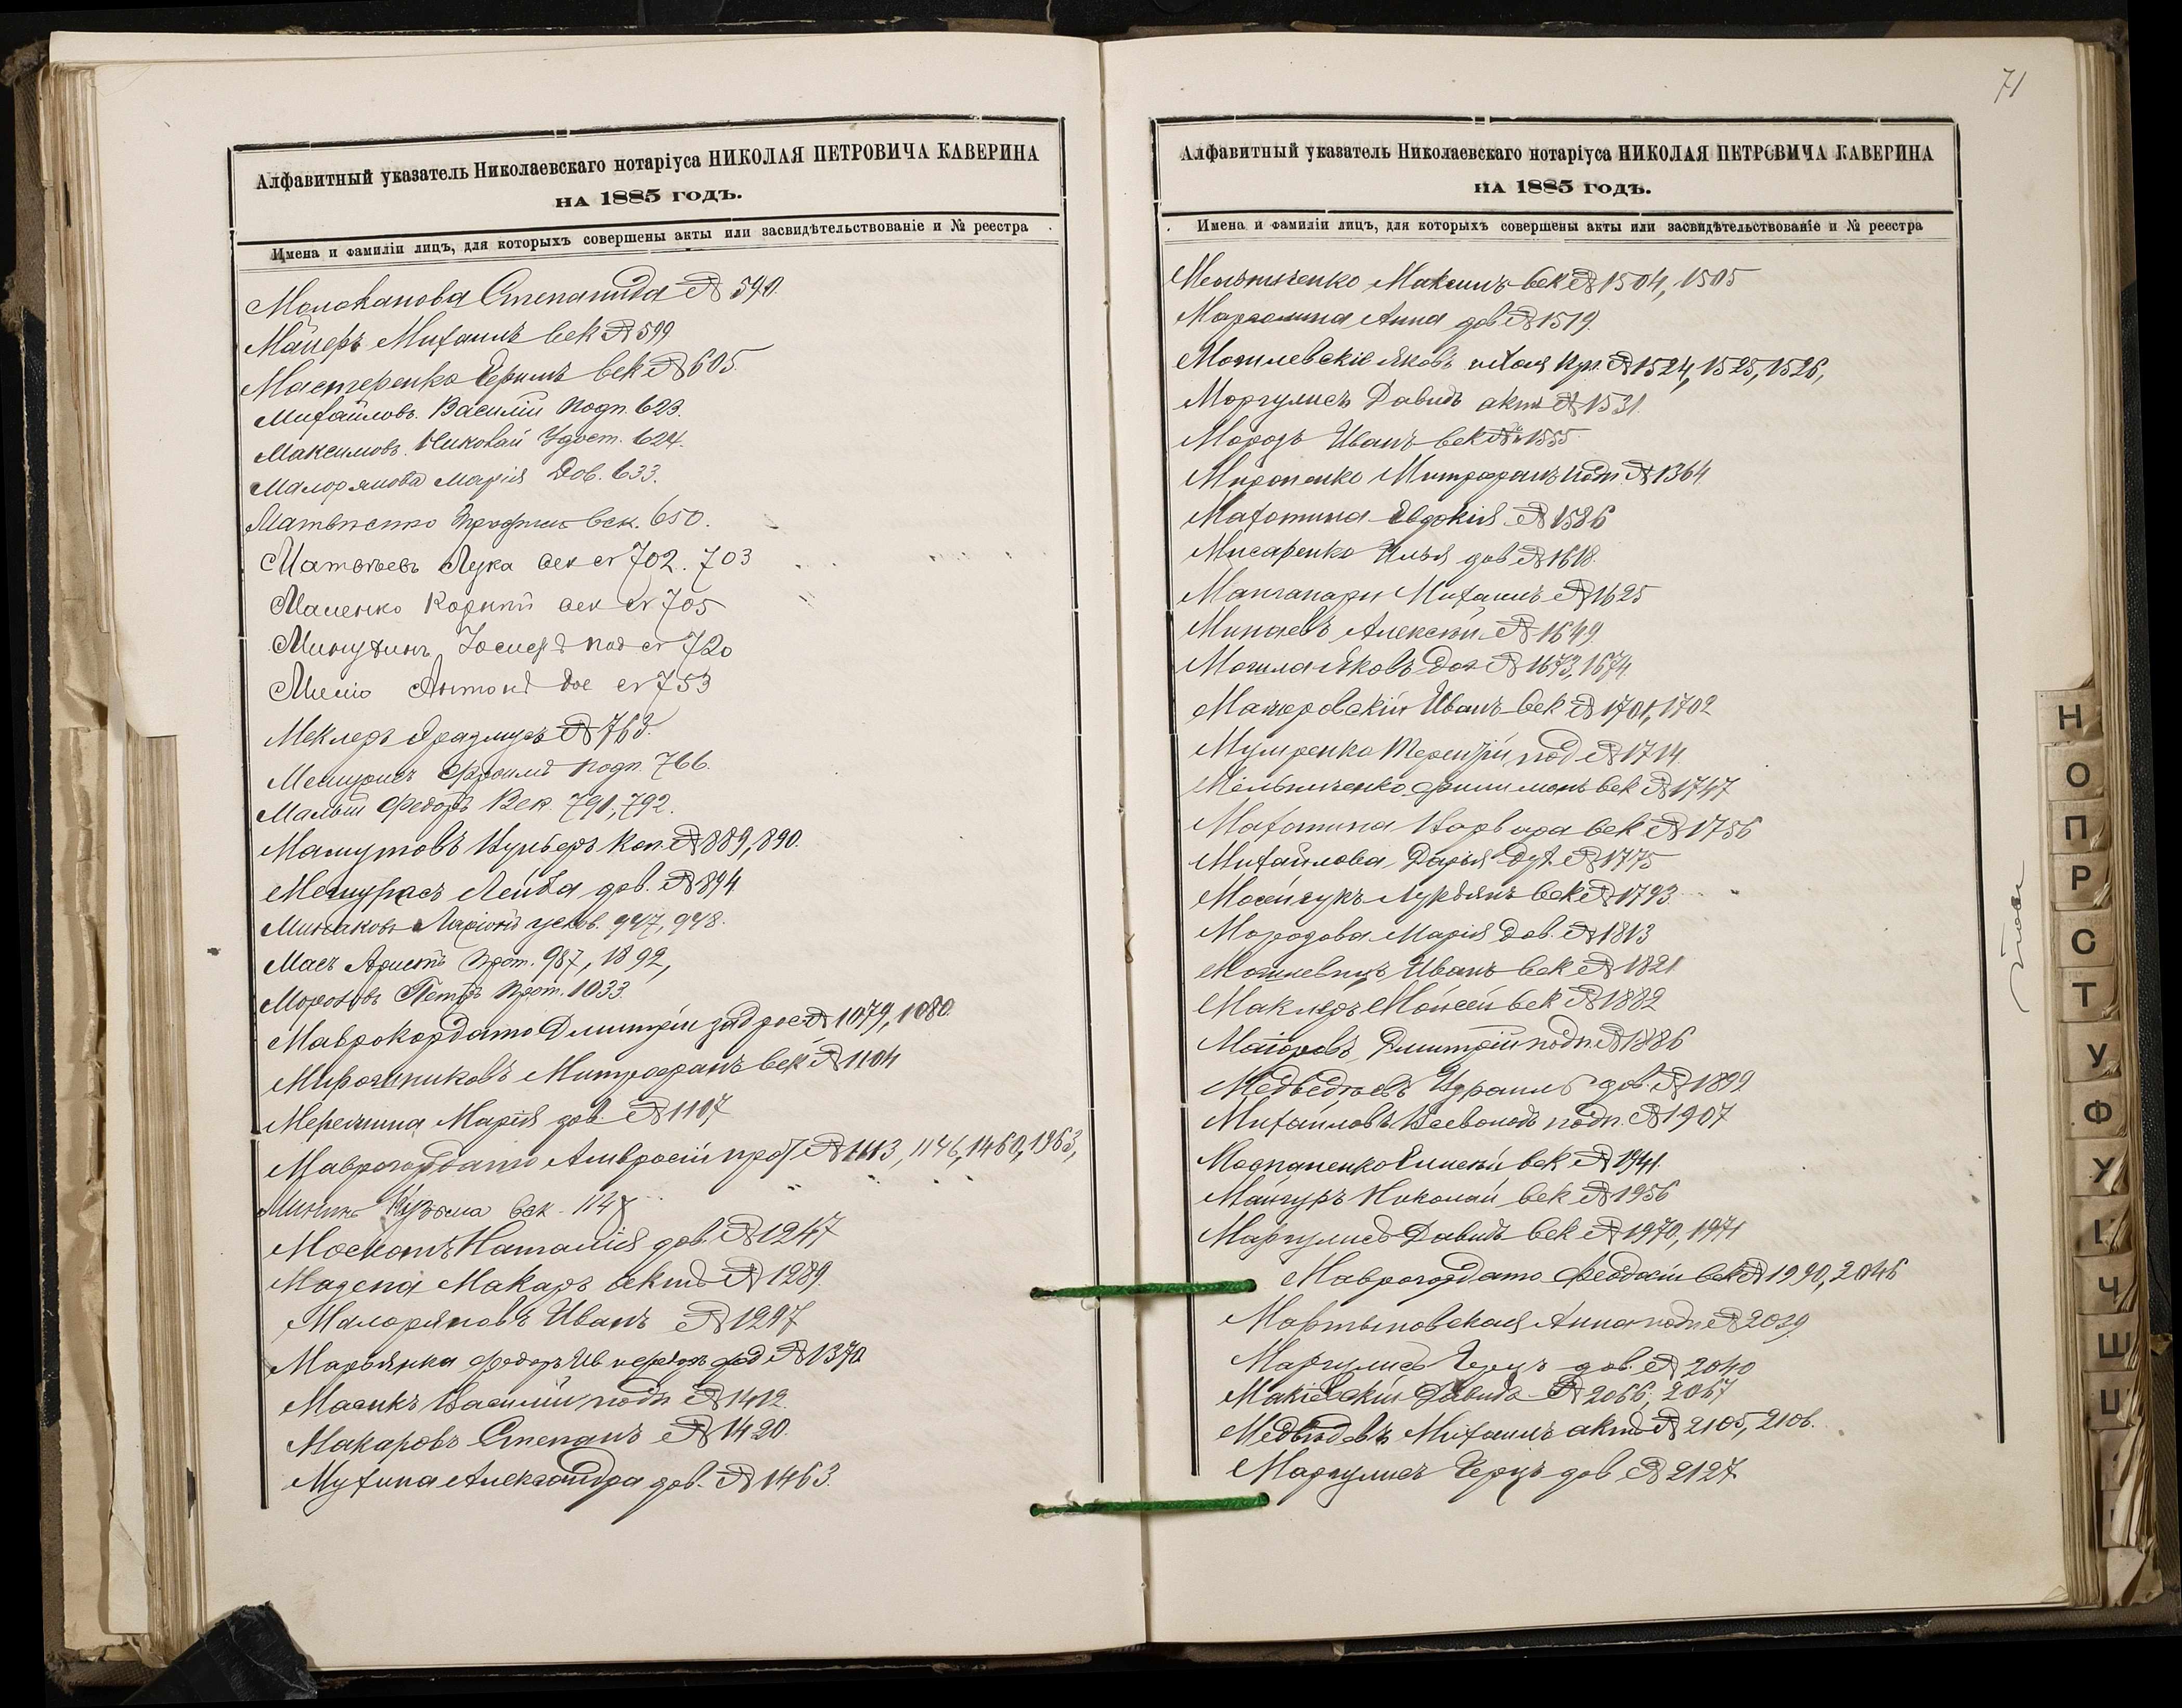 Алфавитный указатель Николаевскаго нотаріуса НИКОЛАЯ ПЕТРОВИЧА КАВЕРИНА
НА 1885 ГОДЪ.
Имена и фамиліи лицъ, для которыхъ совершены акты или засвидѣтельствованіе и № реестра
Молоканова Степанида № 540.
Майеръ Михаилъ век № 599
Мастеренко Герш век № 605.
Михайловъ Василій подп. 623.
Максимовъ Николай Удост. 624.
Малорянова Марія Дов. 633.
век. 650.
Матвѣевъ Лука век № 702. 703
Маленко Корній век № 705
Минухинъ Іосифъ под № 720
Антонъ дов № 753
Меклеръ № 763.
Мешуресъ Фроимъ подп. 766.
Малый Федоръ Век. 791, 792.
Мамутовъ коп. № 889, 890.
Мешуресъ Лейба дов. № 894
Минаковъ Ларіонъ услов. 947, 948.
Масъ прот. 987, 1892,
Морозовъ Петръ прот. 1033.
Маврокордато Дмитрій зад рос № 1079, 1080.
Мирошниковъ Митрофанъ век № 1104
Марія дов. № 1107
Маврогордато Амвросій проч № 1113, 1146, 1460, 1963,
Кузьма век. 1148
Москотъ Наталія дов № 1247
Мазепа Макаръ актъ № 1289.
Малоряновъ Иванъ № 1297
Марьянка Федоръ Ив № 1370
Масикъ Василій подп № 1412.
Макаровъ Степанъ № 1420.
Мухина Александра дов. № 1463.
71
Алфавитный указатель Николаевскаго нотаріуса НИКОЛАЯ ПЕТРОВИЧА КАВЕРИНА
НА 1885 ГОДЪ.
Имена и фамиліи лицъ, для которыхъ совершены акты или засвидѣтельствованіе и № реестра
Мельниченко Максимъ век № 1504, 1505
Марголина Анна дов № 1519.
Могилевскіе Яковъ и Хая куп. № 1524, 1525, 1526,
Моргулисъ Давидъ актъ № 1531.
Морозъ Иванъ век № 1555.
Мироненко Митрофанъ подп № 1364
Махотина Евдокія № 1586
Мисаренко Илья дов № 1618.
Манганари Михаилъ № 1625
Минаевъ Алексѣй № 1649.
Могила Яковъ Дог № 1673, 1674.
Иванъ век № 1701, 1702
Терентій под № 1714.
Мельниченко Филимонъ век № 1747
Махотина Варвара век № 1756
Михайлова Дарья Дух № 1775
Мосейчукъ Лукьянъ век № 1793.
Морозова Марія Дов. № 1813
Иванъ век № 1821
Маклеръ Мойсей век № 1882
Маіоровъ Дмитрій подп. № 1886
Медвѣдьевъ Израиль дов. № 1899
Михайловъ Всеволодъ подп. № 1907
Моспаненко Елисей век № 1941.
Майгуръ Николай век № 1956
Маргулисъ Давидъ век № 1970, 1971
Маврогордато Феодосій век № 1990, 2046
Мартыновская Анна подп № 2029.
Маргулисъ Герцъ дов. № 2040
Макіевскій Давидъ № 2066, 2067
Медвѣдевъ Михаилъ актъ № 2105, 2106.
Маргулисъ Герцъ дов № 2127.
Н
О
П
Р
С
Т
У
Ф
Ч
Ш